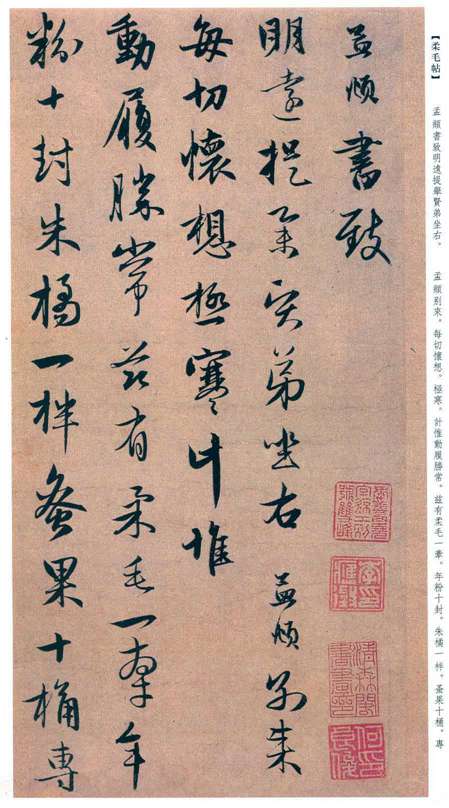 【柔毛帖】
孟頫書致明遠提舉賢弟坐右。 孟頫别來。每切懷想。極寒。計惟動履勝常。兹有柔毛一牽。年粉十封。朱橘一柈。蚤果十桶。專
孟頫書致
明遠提舉賢弟坐右 孟頫别來
每切懷想極寒計惟
動履勝常兹有柔毛一牽年
粉十封朱橘一柈蚤果十桶專
清森閣書畫印